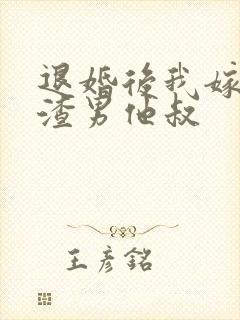 退婚後我嫁
渣男他叔
王彥銘